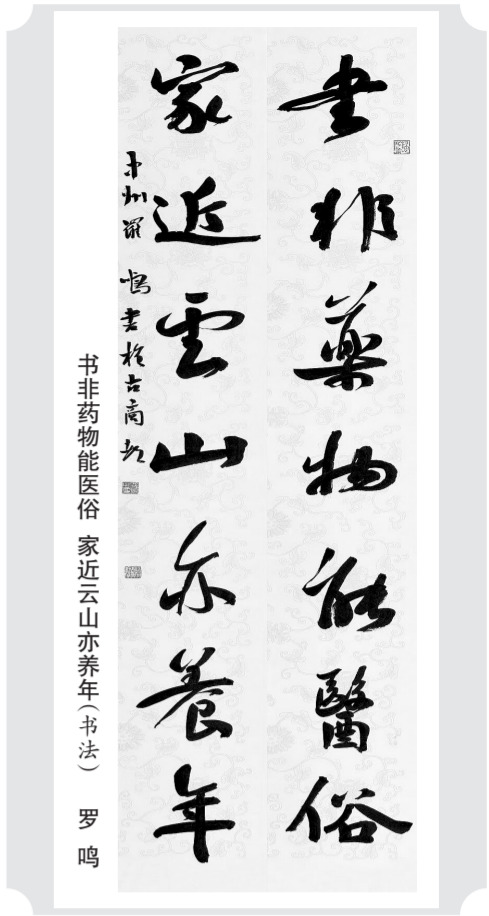 書非藥物能醫俗
家近雲山亦養年
中州羅鳴書於古商都
书非药物能医俗 家近云山亦养年(书法) 罗 鸣